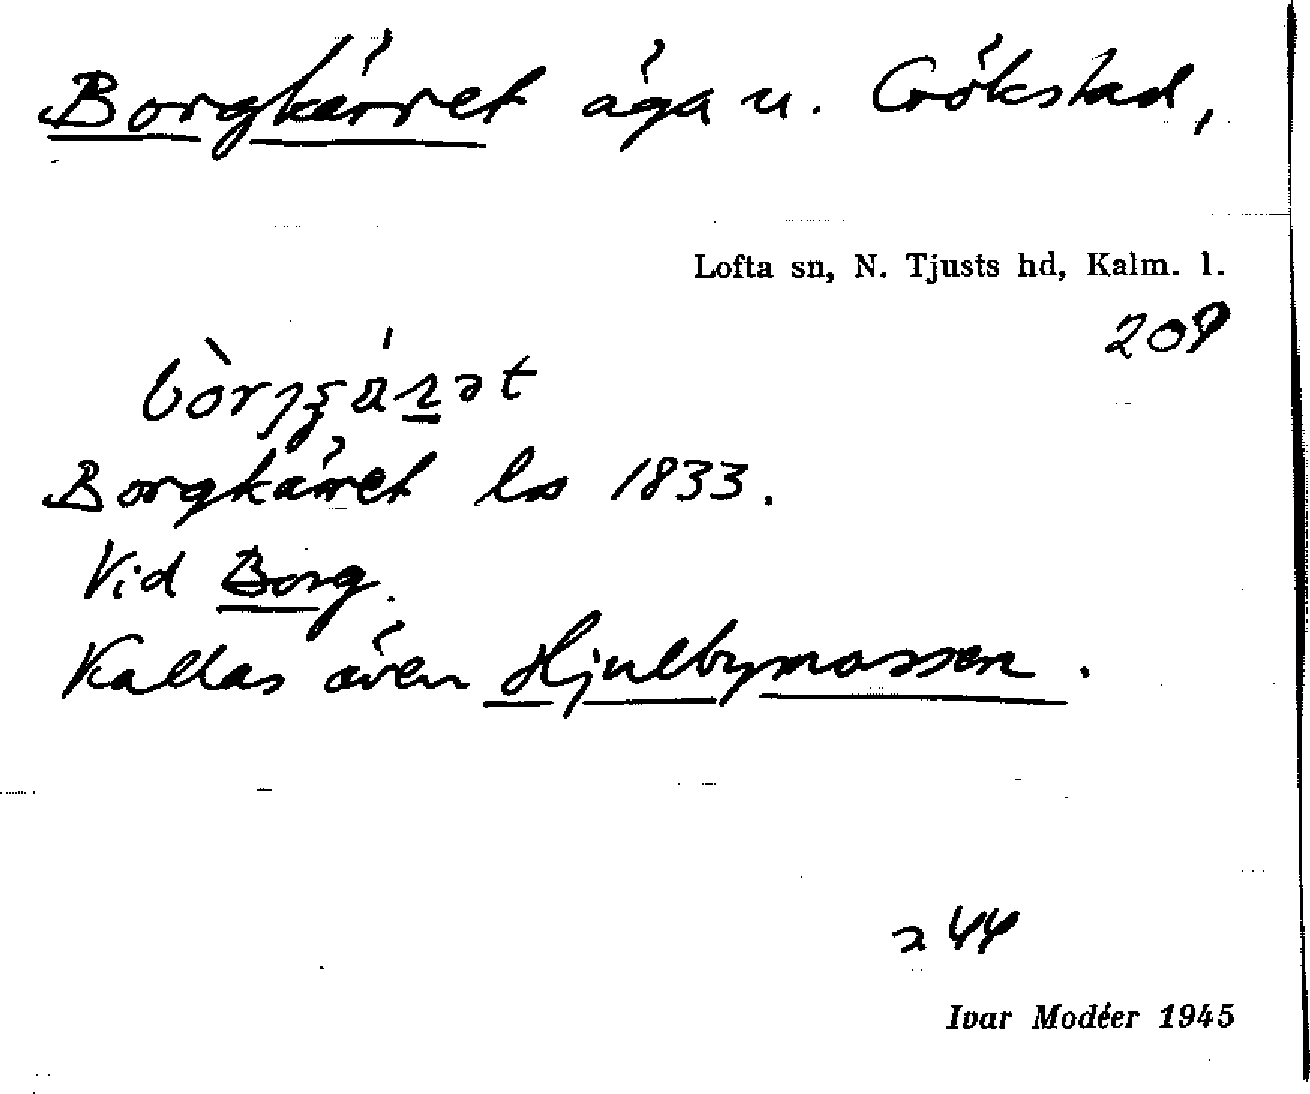 Borgkärret äga u. Gökstad,
Lofta sn, N. Tjusts hd, Kalm. l.
209
Borgkärret ls 1833.
Vid Borg.
Kallas även Hjulbymossen.
244
Ivar Modéer 1945